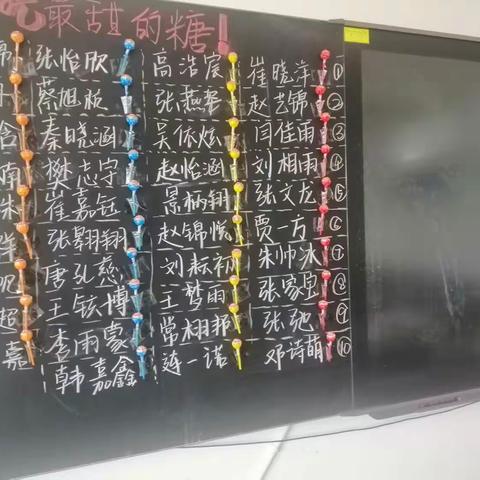 吃最甜的糖！
张怡欣 高浩宸 崔晓洋 ①
蔡旭 张燕 赵艺锦 ②
含 秦晓涵 吴依炫 闫佳雨 ③
南 樊志宇 赵怡涵 刘相雨 ④
朱 崔嘉钰 景柄翔 张文龙 ⑤
张翱翔 赵锦悦 贾一方 ⑥
唐孔慈 刘耘初 朱帅冰 ⑦
王铉博 王梦雨 张家 ⑧
超 李雨蒙 常栩 张弛 ⑨
嘉 韩嘉鑫 连一诺 邓诗萌 ⑩